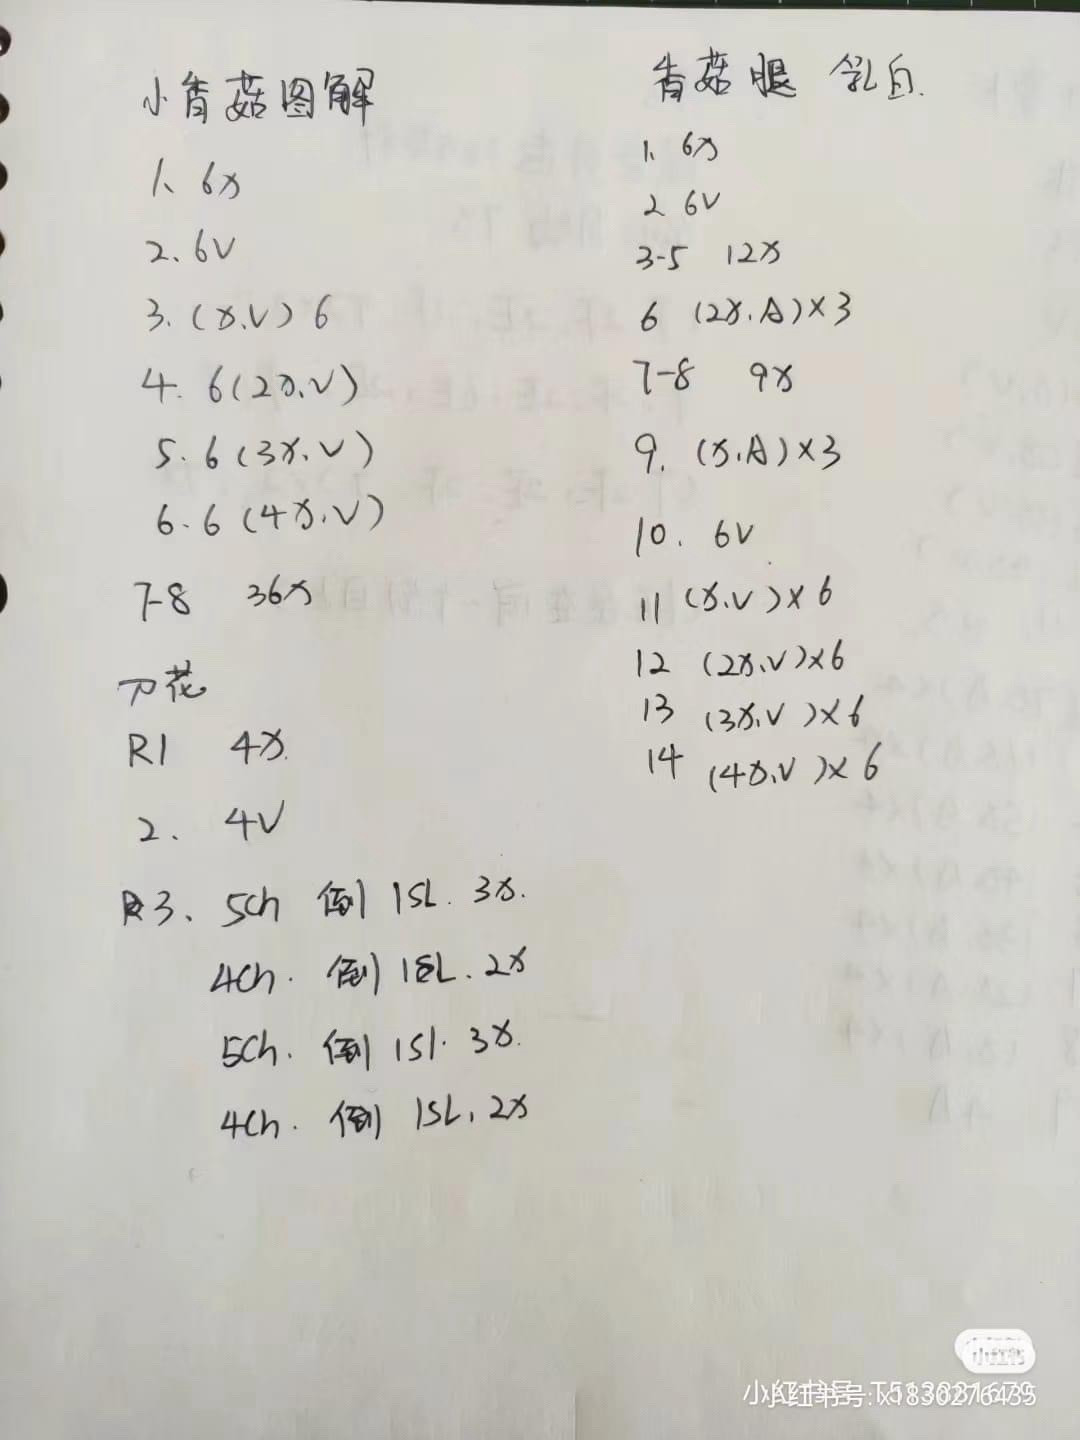 小香菇图解
1、6x
2、6V
3.(x.V)6
4. 6(2x.V)
5. 6(3x.V)
6. 6(4x.V)
7-8 36x
刀花
R1 4x.
2. 4V
R3、5Ch 倒 1SL. 3x.
4Ch. 倒 1SL. 2x
5Ch. 倒 1Sl. 3x.
4Ch. 倒 1SL. 2x
香菇腿 乳白.
1、6x
2 6V
3-5 12x
6 (2x.A)×3
7-8 9x
9. (x.A)×3
10. 6V
11 (x.V)×6
12 (2x.V)×6
13 (3x.V)×6
14 (4x.V)×6
小红书
小红书号: